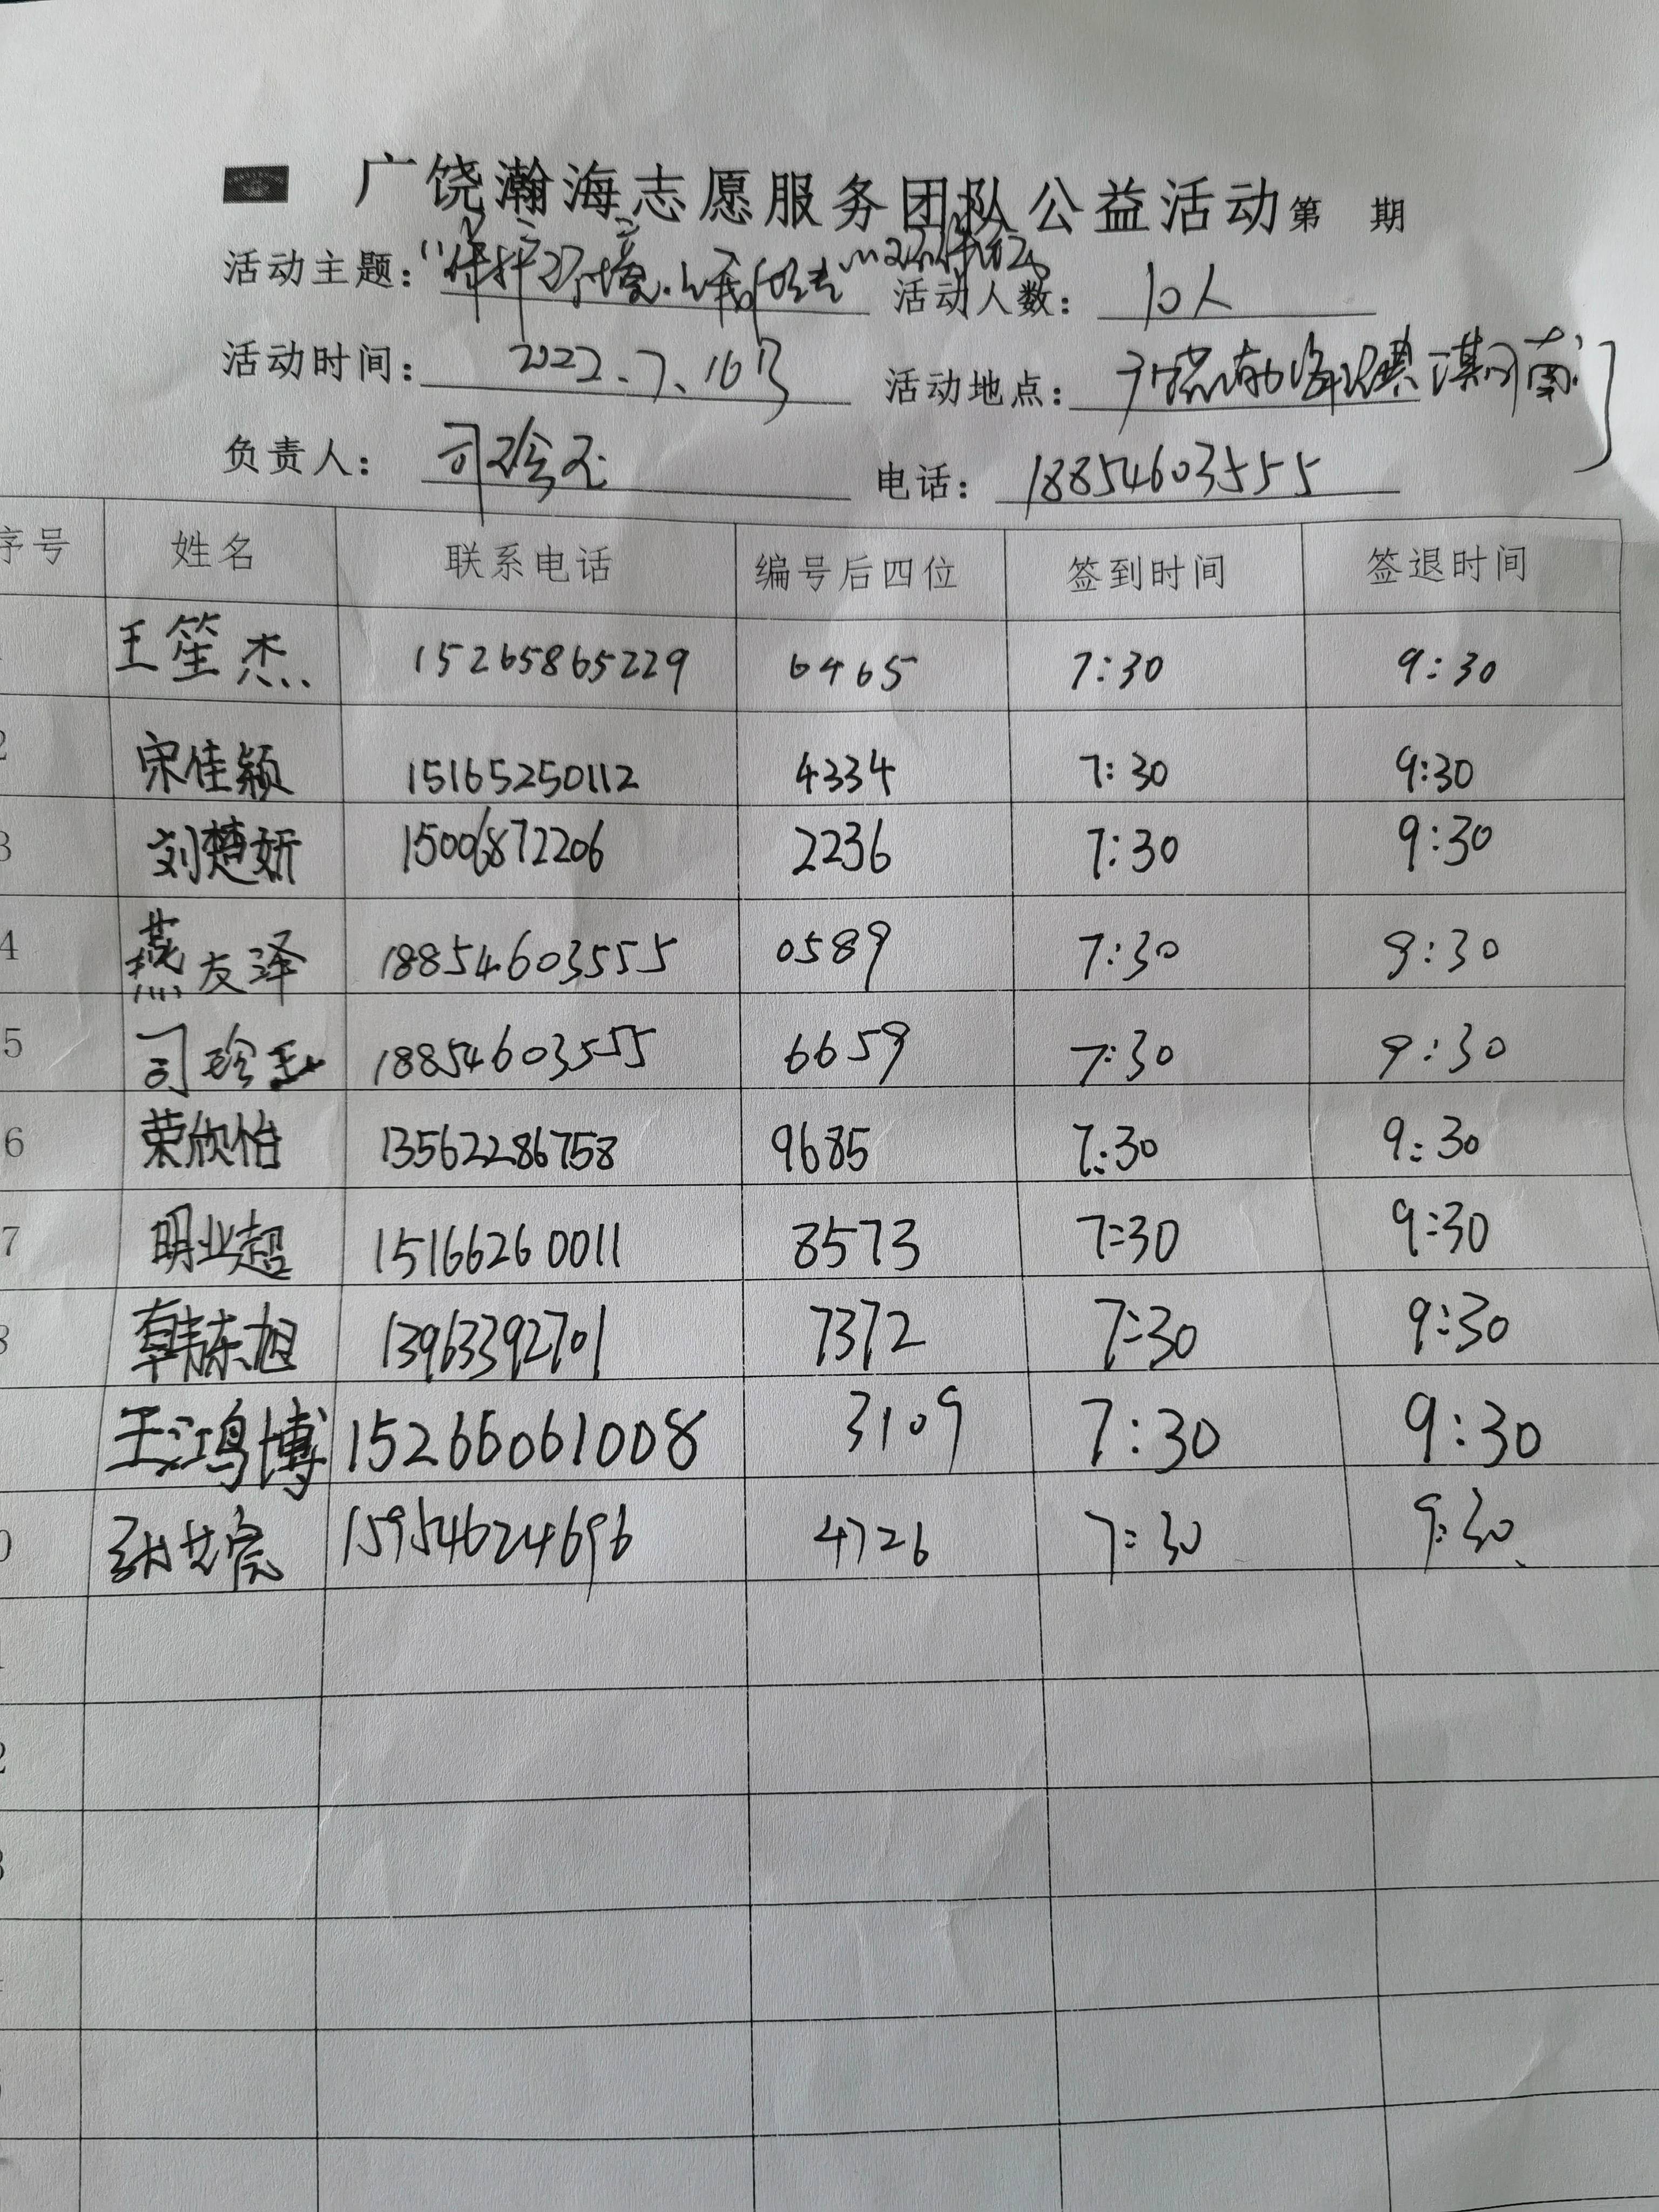 广饶瀚海志愿服务团队公益活动第 期
活动主题：“保护环境，从我做起” 活动人数：10人
活动时间：2022.7.16号 活动地点：
负责人：司珍玉 电话：18854603555
序号 姓名 联系电话 编号后四位 签到时间 签退时间
王笙杰 15265865229 6465 7:30 9:30
2 宋佳颖 15165250112 4334 7:30 9:30
3 刘楚妍 15006872206 2236 7:30 9:30
4 燕友泽 18854603555 0589 7:30 9:30
5 司珍玉 18854603555 6659 7:30 9:30
6 荣欣怡 13562286758 9685 7:30 9:30
7 明业超 15166260011 8573 7:30 9:30
8 韩东旭 13963392701 7372 7:30 9:30
王鸿博 15266061008 3109 7:30 9:30
0 15954624696 4726 7:30 9:30
2
3